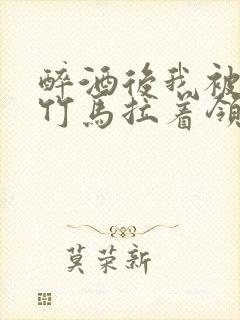 醉酒後我被
竹馬拉着領
莫荣新